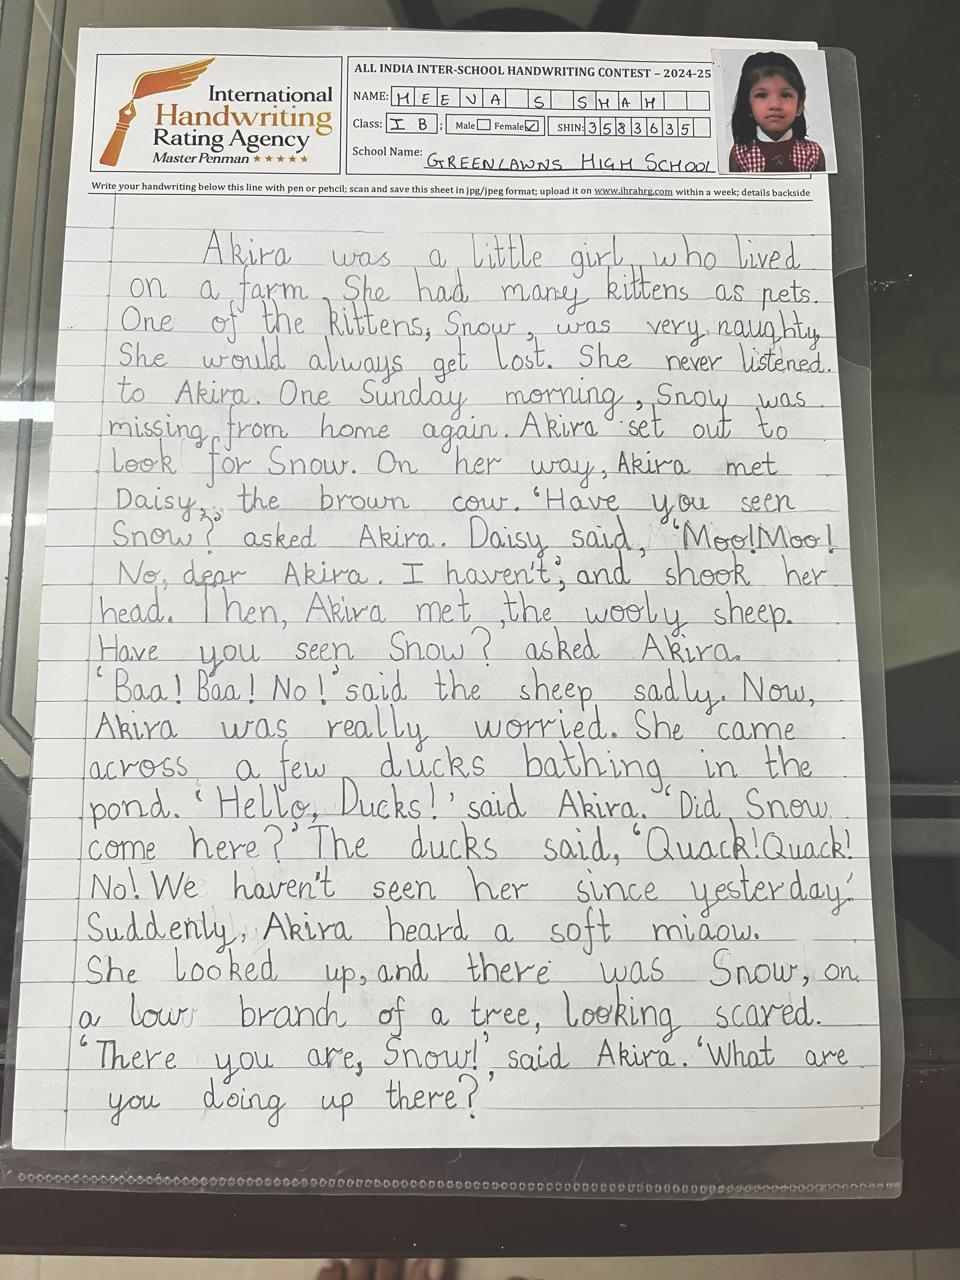 International
Handwriting
Rating Agency
Master Penman ★★★★★
ALL INDIA INTER-SCHOOL HANDWRITING CONTEST – 2024-25
NAME: MEEVA S SHAH
Class: I B ; Male Female ✓ SHIN: 3583635
School Name: GREENLAWNS HIGH SCHOOL
Write your handwriting below this line with pen or pencil; scan and save this sheet in jpg/jpeg format; upload it on www.ihrahrg.com within a week; details backside
Akira was a little girl who lived
on a farm. She had many kittens as pets.
One of the kittens, Snow, was very naughty
She would always get lost. She never listened.
to Akira. One Sunday morning, Snow was
missing from home again. Akira set out to
look for Snow. On her way, Akira met
Daisy, the brown cow. 'Have you seen
Snow?' asked Akira. Daisy said, 'Moo! Moo!
No, dear Akira. I haven't', and shook her
head. Then, Akira met the wooly sheep.
Have you seen Snow? asked Akira.
'Baa! Baa! No!' said the sheep sadly. Now,
Akira was really worried. She came
across a few ducks bathing in the
pond. 'Hello, Ducks!' said Akira. 'Did Snow
come here?' The ducks said, 'Quack! Quack!
No! We haven't seen her since yesterday.'
Suddenly, Akira heard a soft miaow.
She looked up, and there was Snow, on
a low branch of a tree, looking scared.
'There you are, Snow!', said Akira. 'What are
you doing up there?'